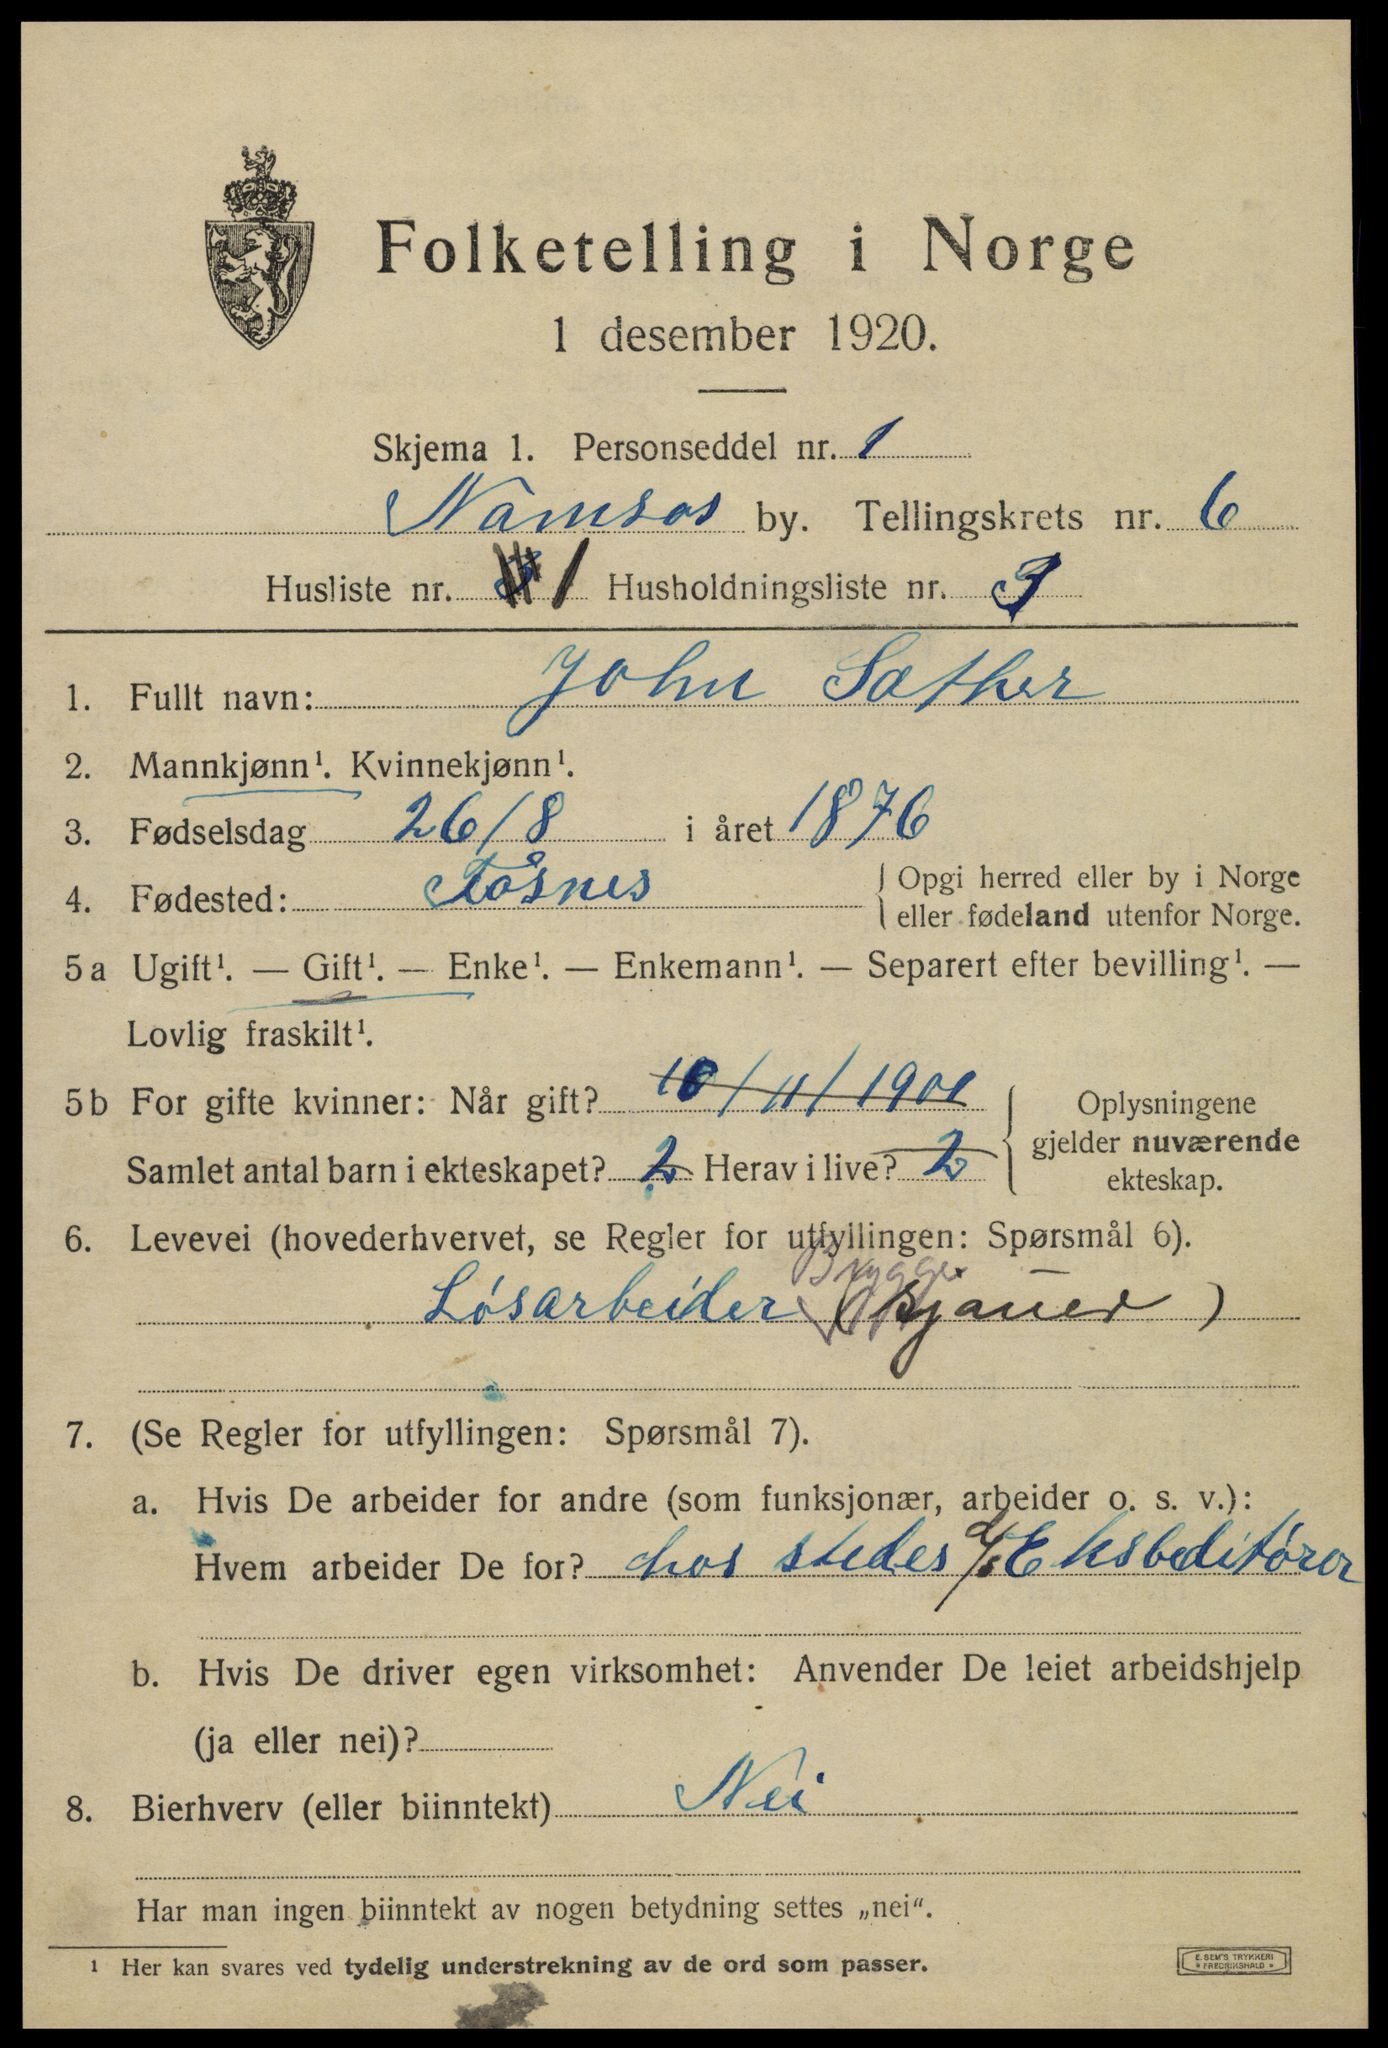 Folketelling i Norge
1 desember 1920.
Skjema 1. Personseddel nr. 1
Namsos by. Tellingskrets nr. 6
Husliste nr. 1 Husholdningsliste nr. 3
1. Fullt navn: John Sæther
2. Mannkjønn¹. Kvinnekjønn¹.
3. Fødselsdag 26/8 i året 1876
4. Fødested: Fosnes { Opgi herred eller by i Norge
eller fødeland utenfor Norge.
5a Ugift¹. — Gift¹. — Enke¹. — Enkemann¹. — Separert efter bevilling¹. —
Lovlig fraskilt¹.
5b For gifte kvinner: Når gift? 10/11/1901 } Oplysningene
gjelder nuværende
ekteskap.
Samlet antal barn i ekteskapet? 2 Herav i live? 2
6. Levevei (hovederhvervet, se Regler for utfyllingen: Spørsmål 6).
Brygge
Løsarbeider (sjauer)
7. (Se Regler for utfyllingen: Spørsmål 7).
a. Hvis De arbeider for andre (som funksjonær, arbeider o. s. v.):
Hvem arbeider De for? hos stedes d/s Eksbeditører
b. Hvis De driver egen virksomhet: Anvender De leiet arbeidshjelp
(ja eller nei)?
8. Bierhverv (eller biinntekt) Nei
Har man ingen biinntekt av nogen betydning settes „nei“.
¹ Her kan svares ved tydelig understrekning av de ord som passer.
E. SEM'S TRYKKERI
* FREDRIKSHALD *